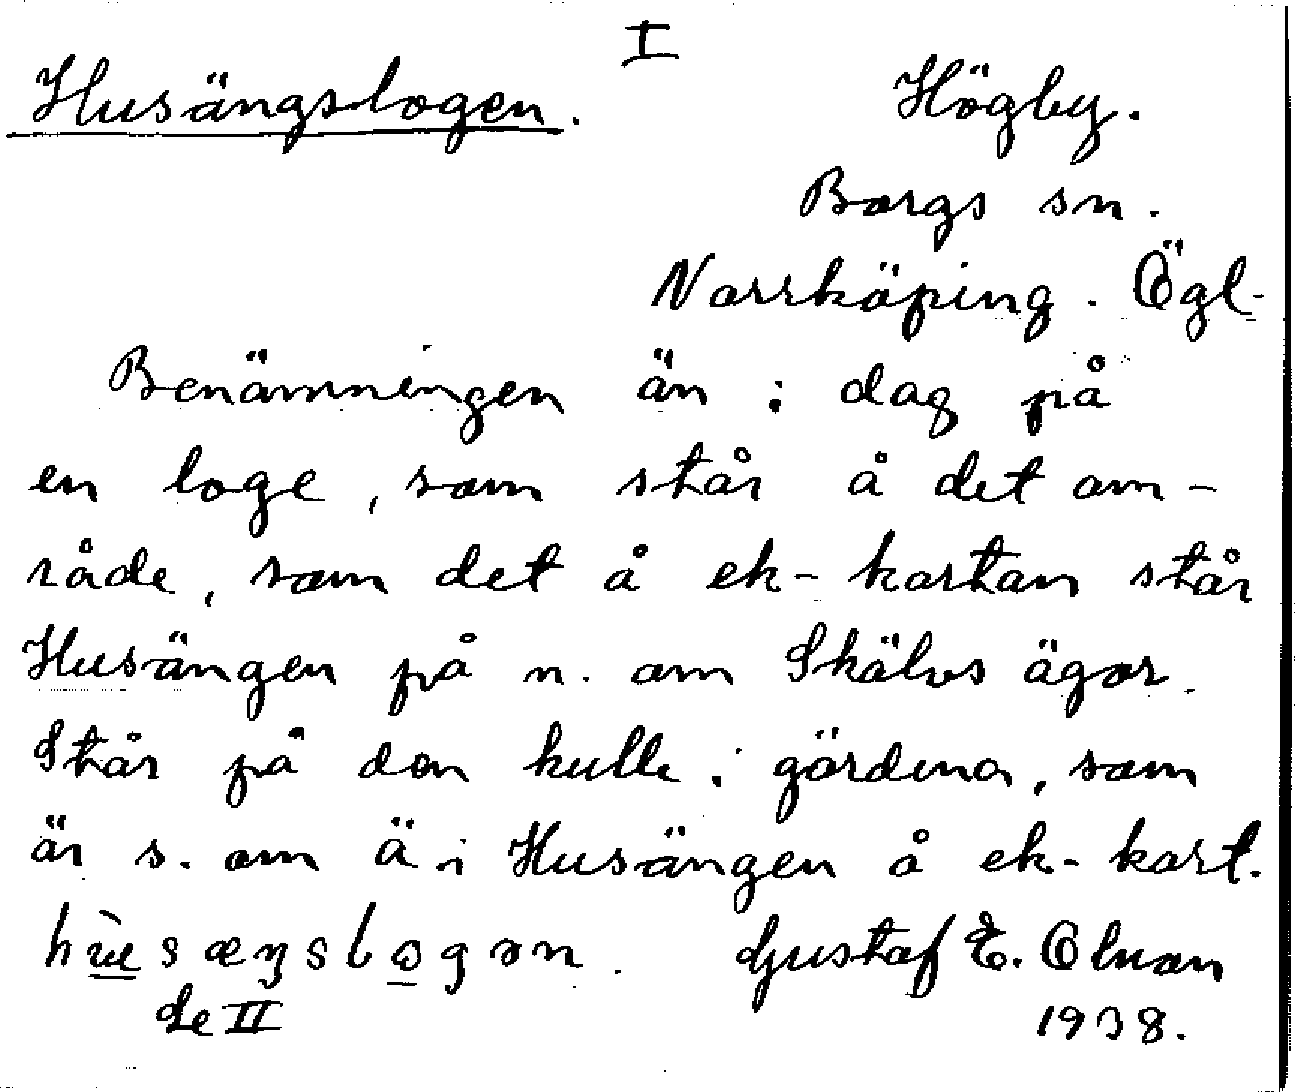 I
Husängslogen. Högby.
Borgs sn.
Norrköping. Ögl.
Benämningen än i dag på
en loge, som står å det om-
råde, som det å ek-kartan står
Husängen på n. om Skälvs ägor.
Står på den kulle i gärdena, som
är s. om ä i Husängen å ek-kart.
hùsæŋslogən. Gustaf E. Olson
Se II 1938.